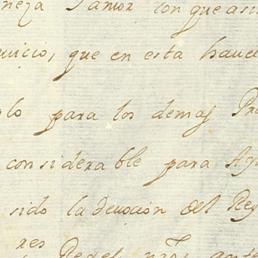 neza Jamor con que asi
uicio, que en esta hauer
plo para los demas Pr
considerable para
sido la devocion del Rey